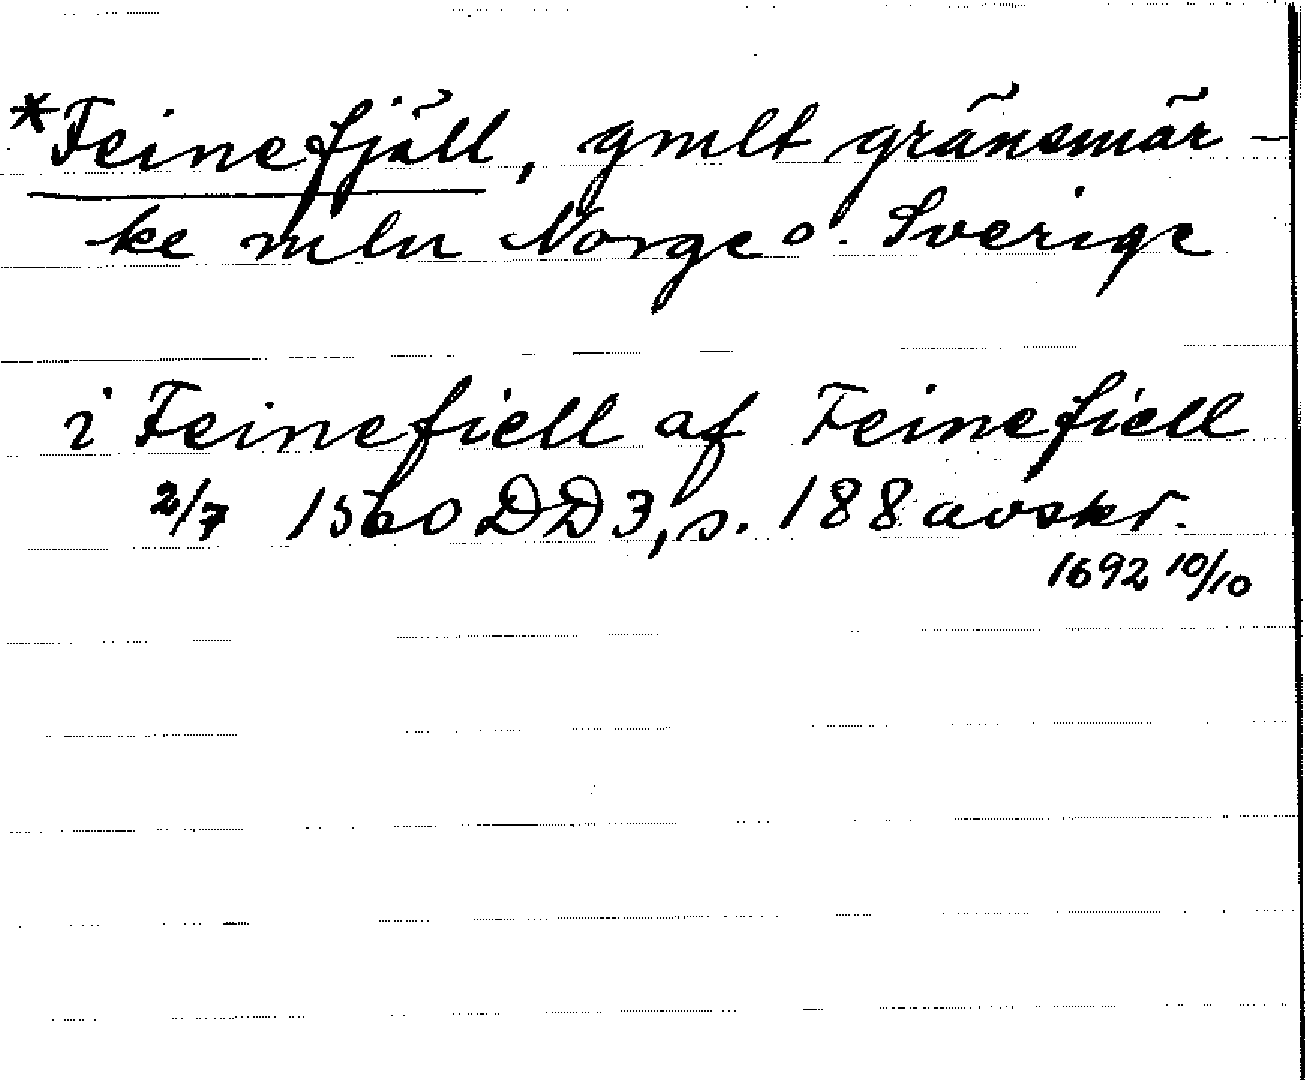 *Feinefjäll, gmlt gränsmär-
ke mln Norge o. Sverige
i Feinefiell af Feinefiell
2/7 1560 DD3, s. 188 avskr.
1692 10/10